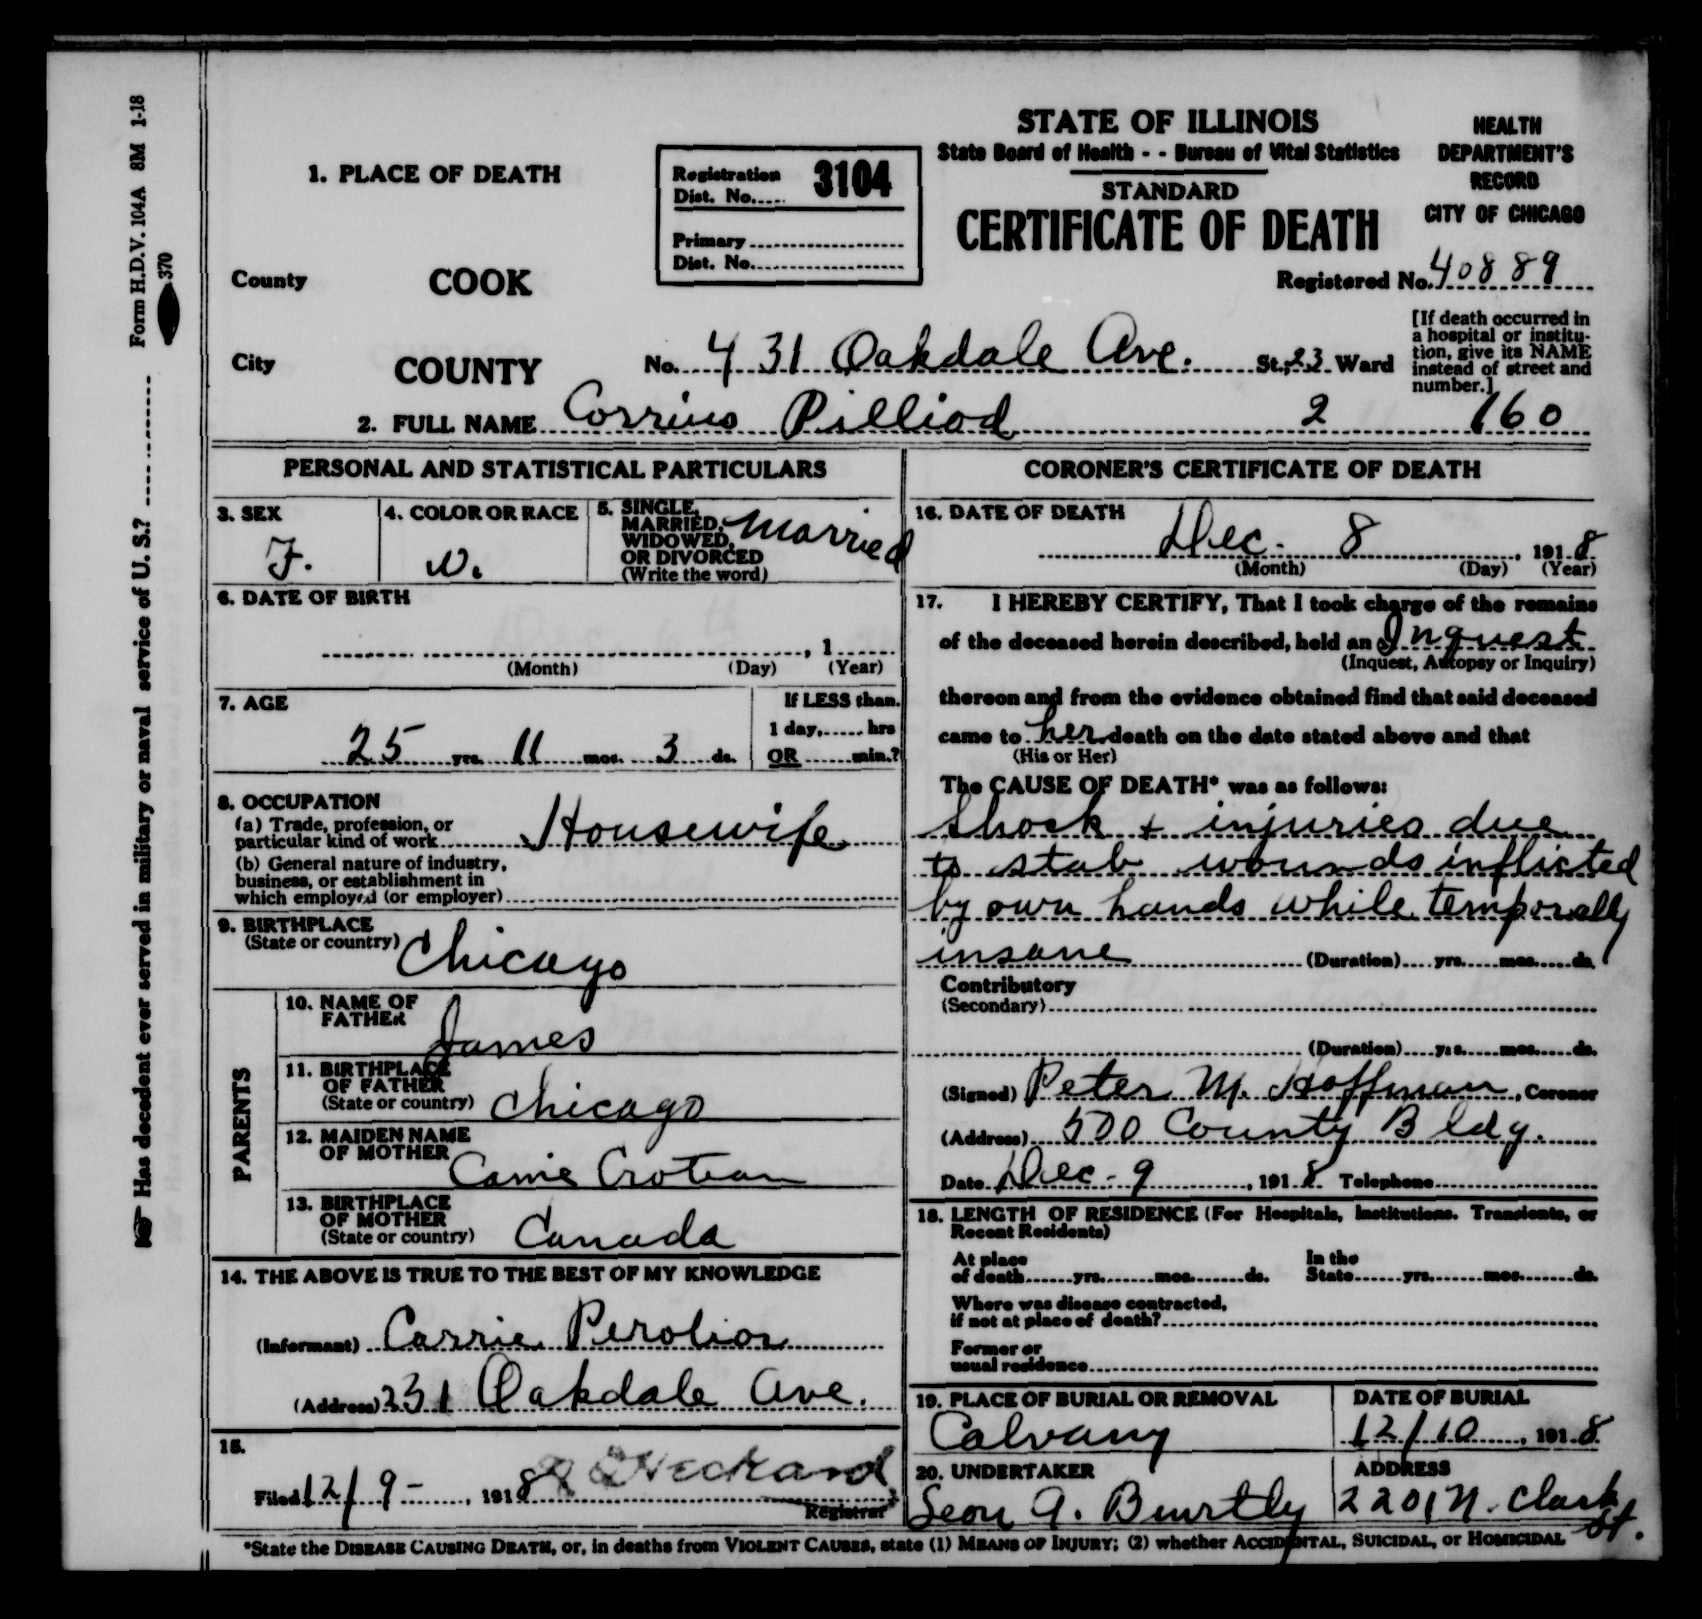 Form H.D.V. 104A 8M 1-18
370
Has decedent ever served in military or naval service of U. S.?
STATE OF ILLINOIS
State Board of Health - - Bureau of Vital Statistics
STANDARD
CERTIFICATE OF DEATH
HEALTH
DEPARTMENT'S
RECORD
CITY OF CHICAGO
Registered No. 40889
1. PLACE OF DEATH
Registration
Dist. No. 3104
Primary
Dist. No.
County COOK
City COUNTY No. 431 Oakdale Ave. St.; 23 Ward
[If death occurred in
a hospital or institu-
tion, give its NAME
instead of street and
number.]
2. FULL NAME Corrins Pilliod 2 160
PERSONAL AND STATISTICAL PARTICULARS
3. SEX F.
4. COLOR OR RACE W.
5. SINGLE,
MARRIED,
WIDOWED,
OR DIVORCED
(Write the word) Married
6. DATE OF BIRTH
, 1
(Month) (Day) (Year)
7. AGE
25 yrs. 11 mos. 3 ds.
If LESS than
1 day, hrs
OR min.?
8. OCCUPATION
(a) Trade, profession, or
particular kind of work Housewife
(b) General nature of industry,
business, or establishment in
which employed (or employer)
9. BIRTHPLACE
(State or country) Chicago
PARENTS
10. NAME OF
FATHER James
11. BIRTHPLACE
OF FATHER
(State or country) Chicago
12. MAIDEN NAME
OF MOTHER Carrie Croteau
13. BIRTHPLACE
OF MOTHER
(State or country) Canada
14. THE ABOVE IS TRUE TO THE BEST OF MY KNOWLEDGE
(Informant) Carrie
(Address) 231 Oakdale Ave.
15.
Filed 12/9- , 1918
Registrar
CORONER'S CERTIFICATE OF DEATH
16. DATE OF DEATH
Dec. 8 , 1918
(Month) (Day) (Year)
17. I HEREBY CERTIFY, That I took charge of the remains
of the deceased herein described, held an Inquest
(Inquest, Autopsy or Inquiry)
thereon and from the evidence obtained find that said deceased
came to her death on the date stated above and that
(His or Her)
The CAUSE OF DEATH* was as follows:
Shock + injuries due
to stab wounds inflicted
by own hands while temporally
insane (Duration) yrs. mos. ds.
Contributory
(Secondary)
(Duration) yrs. mos. ds.
(Signed) Peter M. Hoffman, Coroner
(Address) 500 County Bldg.
Date Dec. 9 , 1918 Telephone
18. LENGTH OF RESIDENCE (For Hospitals, Institutions, Transients, or
Recent Residents)
At place
of death yrs. mos. ds.
In the
State yrs. mos. ds.
Where was disease contracted,
if not at place of death?
Former or
usual residence
19. PLACE OF BURIAL OR REMOVAL
Calvary
DATE OF BURIAL
12/10 , 1918
20. UNDERTAKER
Leon A.
ADDRESS
2201 N. Clark
St.
*State the DISEASE CAUSING DEATH, or, in deaths from VIOLENT CAUSES, state (1) MEANS OF INJURY; (2) whether ACCIDENTAL, SUICIDAL, or HOMICIDAL